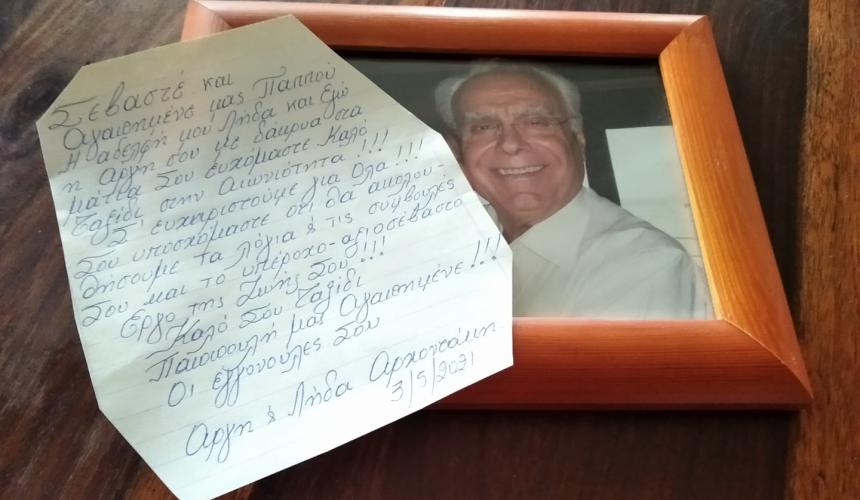 Σεβαστέ και
Αγαπημένε μας Παππού
Η αδελφή μου Λήδα και Εγώ
η Αργη σου με δάκρυα στα
μάτια Σου ευχόμαστε Καλό
Ταξίδι στην Αιωνιότητα!!!
Σ' ευχαριστούμε για Όλα!!!
Σου υποσχόμαστε ότι θα ακολου-
θήσουμε τα λόγια & τις συμβουλές
Σου και το υπέροχο-αξιοσέβαστο
Έργο της Ζωής Σου!!!
Καλό Σου Ταξίδι
Παππουλή μας Αγαπημένε!!!
Οι εγγονούλες Σου
Αργη & Λήδα Αρχοντάκη
3/5/2021